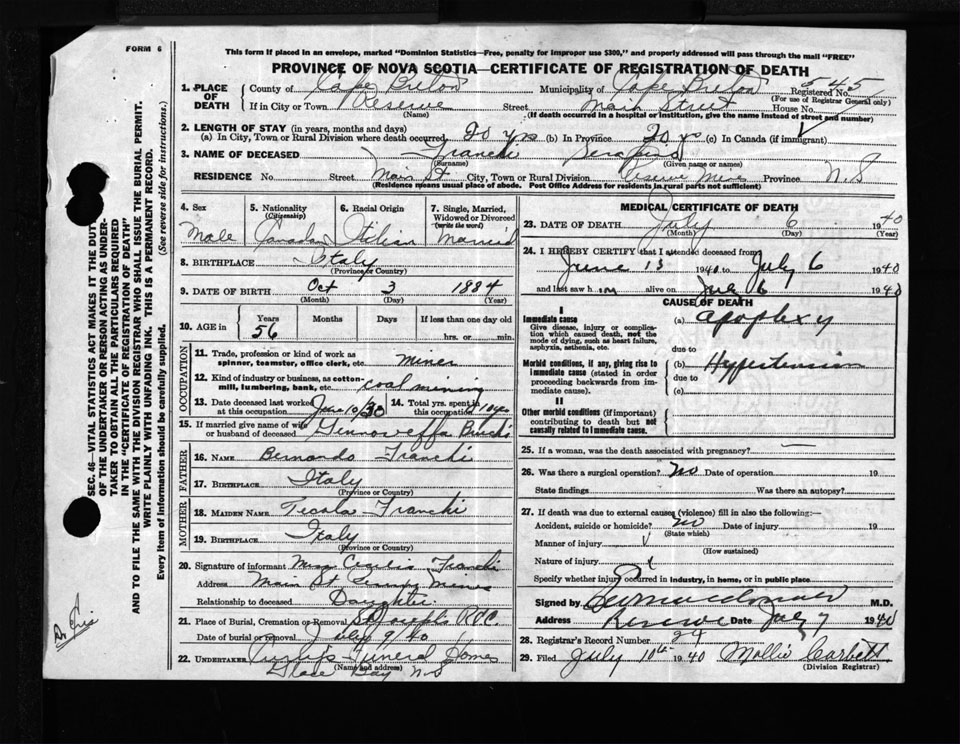 FORM 6
This form if placed in an envelope, marked "Dominion Statistics—Free, penalty for improper use $300," and properly addressed will pass through the mail "FREE"
PROVINCE OF NOVA SCOTIA—CERTIFICATE OF REGISTRATION OF DEATH
1. PLACE OF DEATH
County of Cape Breton Municipality of Cape Breton Registered No. 545
(For use of Registrar General only)
If in City or Town Reserve Street Main Street House No.
(Name) (If death occurred in a hospital or institution, give the name instead of street and number)
2. LENGTH OF STAY (in years, months and days)
(a) In City, Town or Rural Division where death occurred 20 yrs (b) In Province 20 ys (c) In Canada (if immigrant)
3. NAME OF DECEASED Franchi
(Surname) (Given name or names)
RESIDENCE No. Street Main St City, Town or Rural Division Reserve Mine Province N.S
(Residence means usual place of abode. Post Office Address for residents in rural parts not sufficient)
4. Sex Male
5. Nationality (Citizenship) Canadian
6. Racial Origin Itilian
7. Single, Married, Widowed or Divorced (write the word) Married
8. BIRTHPLACE Italy
(Province or Country)
9. DATE OF BIRTH Oct 3 1884
(Month) (Day) (Year)
10. AGE in Years 56 Months Days If less than one day old
hrs. or min.
OCCUPATION
11. Trade, profession or kind of work as spinner, teamster, office clerk, etc. miner
12. Kind of industry or business, as cotton-mill, lumbering, bank, etc. coal mining
13. Date deceased last worked at this occupation June 10/30
14. Total yrs. spent in this occupation 10 yrs
15. If married give name of wife or husband of deceased
FATHER
16. NAME Bernardo Franchi
17. BIRTHPLACE Italy
(Province or Country)
MOTHER
18. MAIDEN NAME Tecola Franchi
19. BIRTHPLACE Italy
(Province or Country)
20. Signature of informant Miss Franchi
Address Main St Mines
Relationship to deceased Daughter
21. Place of Burial, Cremation or Removal St Josephs
Date of burial or removal July 9/40
22. UNDERTAKER Funeral Home
(Name and address)
Glace Bay N.S
MEDICAL CERTIFICATE OF DEATH
23. DATE OF DEATH July 6 1940
(Month) (Day) (Year)
24. I HEREBY CERTIFY that I attended deceased from
June 13 1940 to July 6 1940
and last saw him alive on July 6 1940
CAUSE OF DEATH
I
Immediate cause
Give disease, injury or complication which caused death, not the mode of dying, such as heart failure, asphyxia, asthenia, etc.
(a) apoplexy
due to
Morbid conditions, if any, giving rise to immediate cause (stated in order proceeding backwards from immediate cause).
(b) Hypertension
due to
(c)
II
Other morbid conditions (if important) contributing to death but not causally related to immediate cause.
25. If a woman, was the death associated with pregnancy?
26. Was there a surgical operation? no Date of operation 19
State findings Was there an autopsy?
27. If death was due to external causes (violence) fill in also the following:—
Accident, suicide or homicide? no Date of injury 19
(State which)
Manner of injury
(How sustained)
Nature of injury
Specify whether injury occurred in industry, in home, or in public place
Signed by M.D.
Address Reserve Date July 7 1940
28. Registrar's Record Number 24
29. Filed July 10th 1940 Mollie Corbett
(Division Registrar)
SEC. 46—VITAL STATISTICS ACT MAKES IT THE DUTY
OF THE UNDERTAKER OR PERSON ACTING AS UNDERTAKER TO OBTAIN ALL THE PARTICULARS REQUIRED
IN THE "CERTIFICATE OF REGISTRATION OF DEATH"
AND TO FILE THE SAME WITH THE DIVISION REGISTRAR WHO SHALL ISSUE THE BURIAL PERMIT.
WRITE PLAINLY WITH UNFADING INK. THIS IS A PERMANENT RECORD.
Every item of information should be carefully supplied. (See reverse side for instructions.)